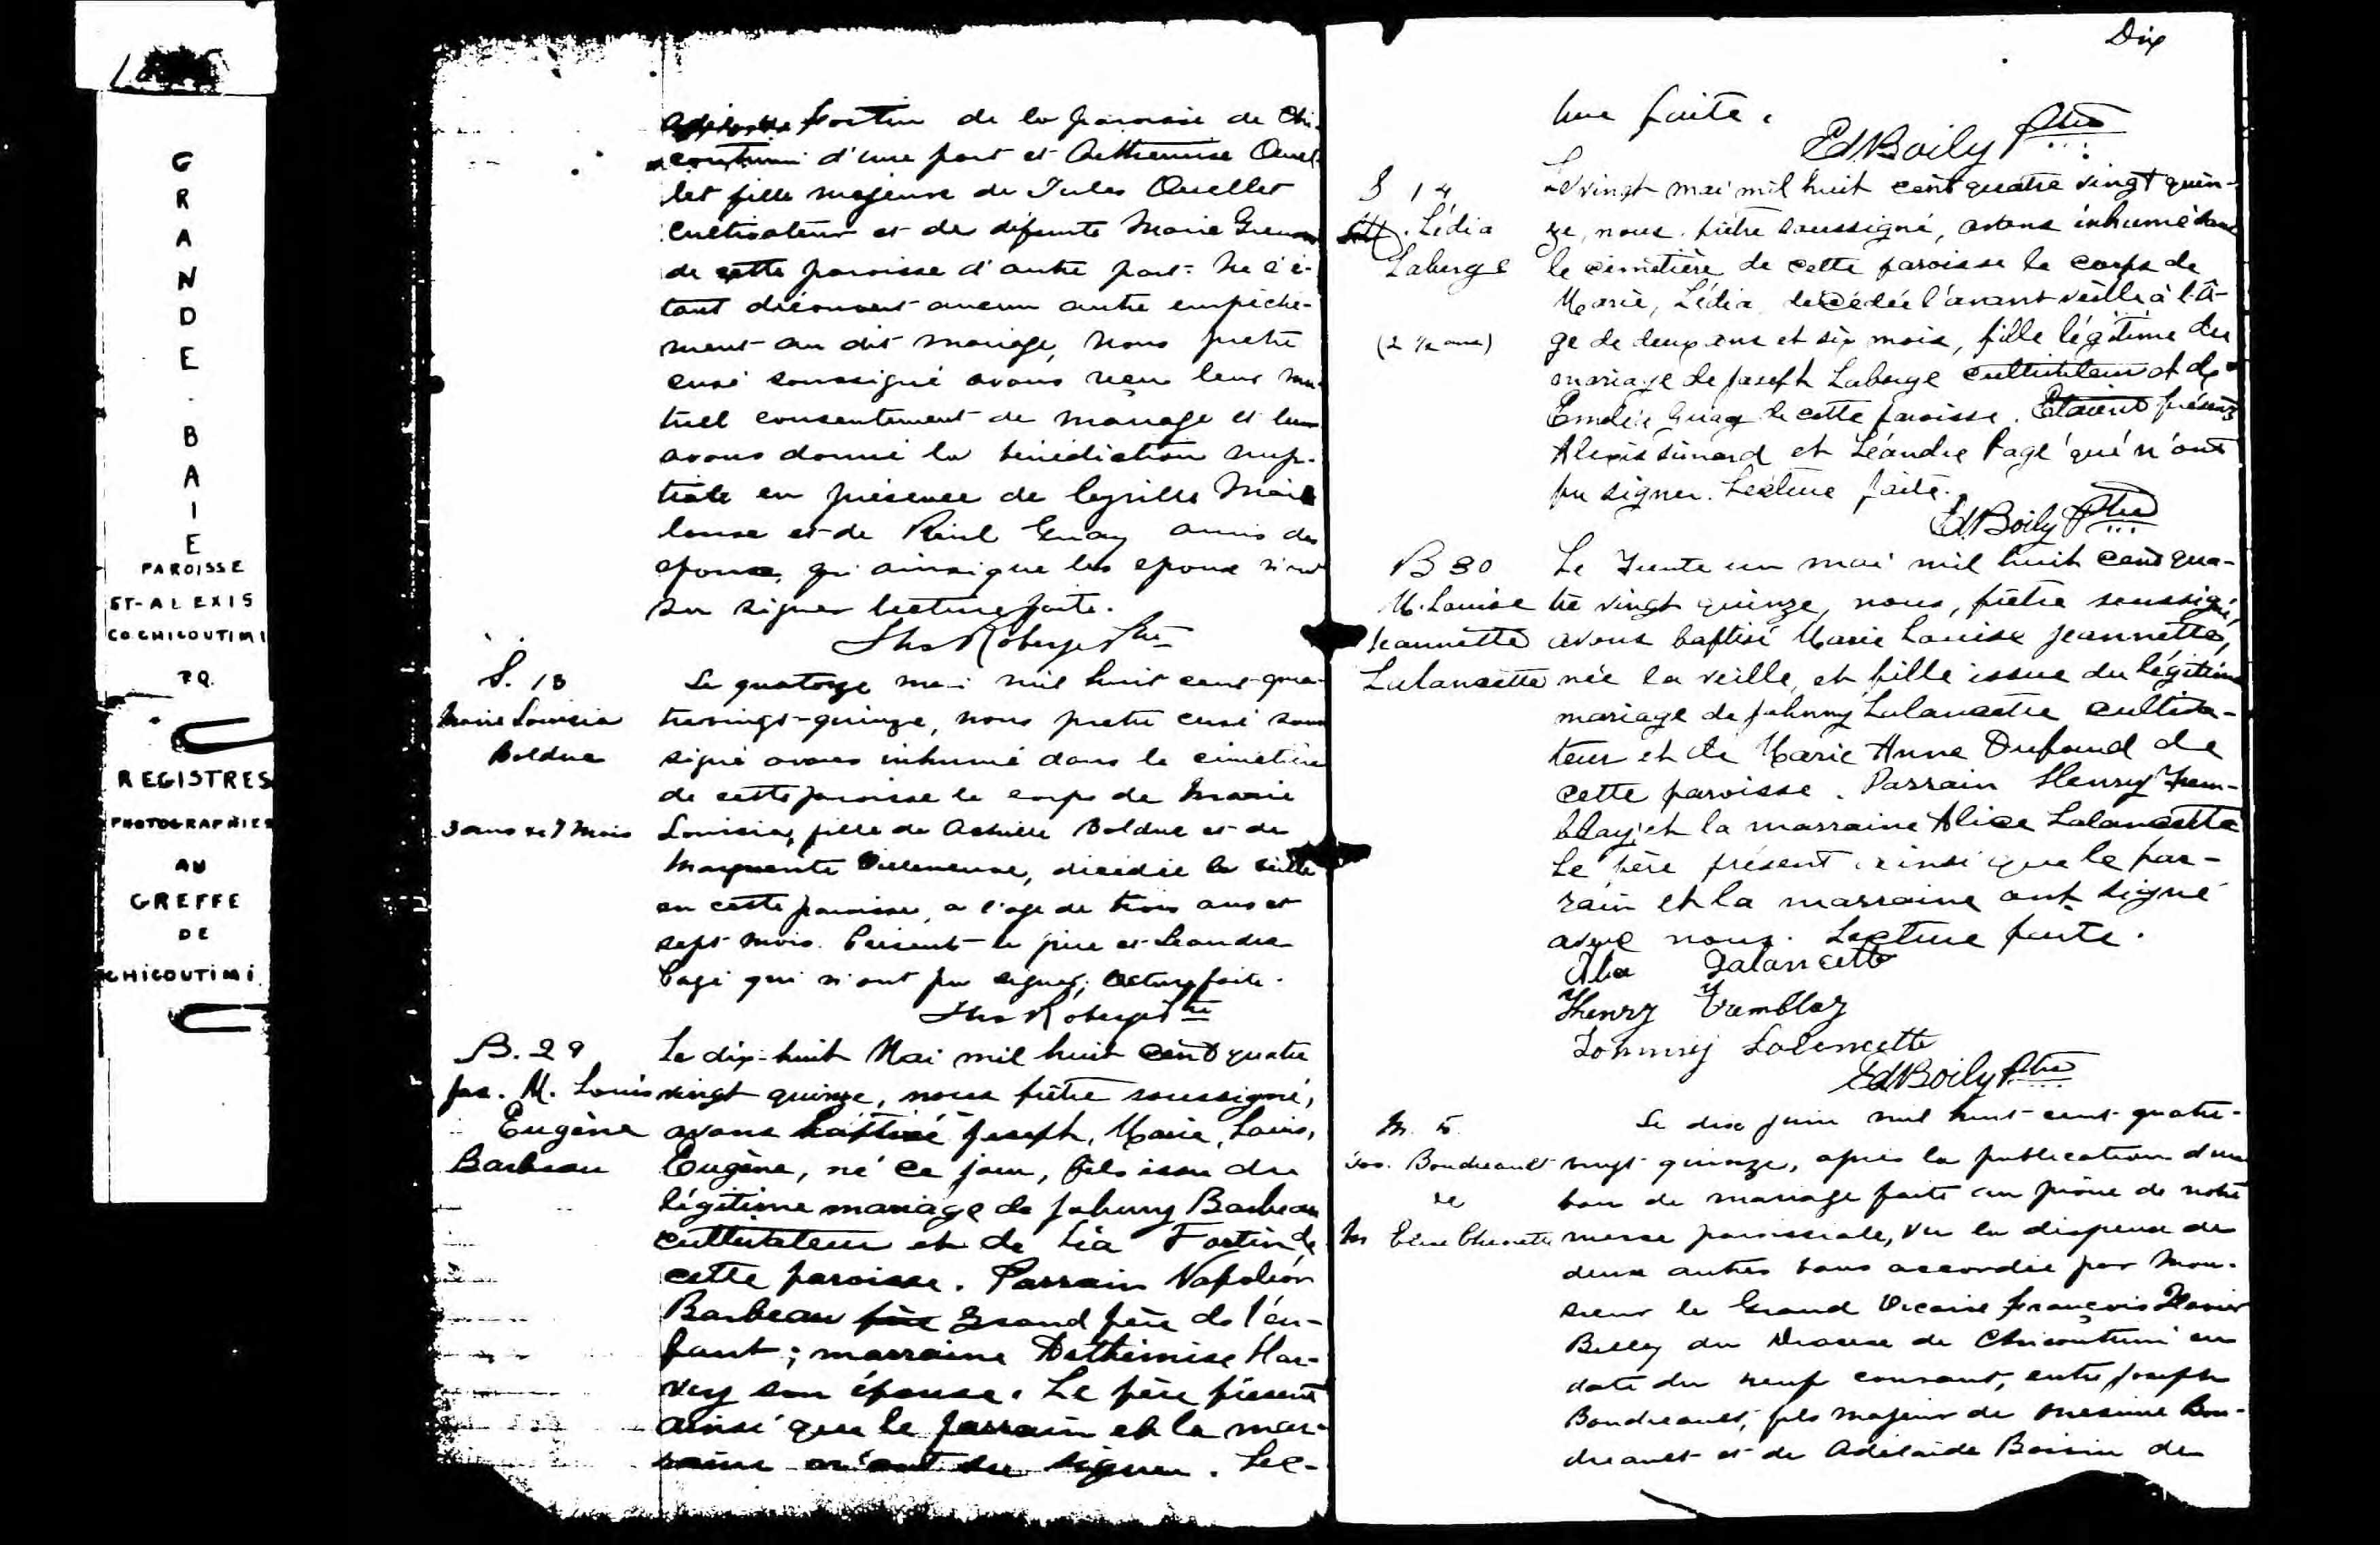 GRANDE-BAIE
PAROISSE
ST-ALEXIS
CO CHICOUTIMI
P.Q.
REGISTRES
PHOTOGRAPHIES
AU
GREFFE
DE
CHICOUTIMI
Fortin de la paroisse de Chi-
coutimi d'une part et Arthemise Ouel-
let fille majeure de Jules Ouellet
cultivateur et de défunte Marie
de cette paroisse d'autre part. Ne s'é-
tant découvert aucun autre empêche-
ment au dit mariage, nous pretre
curé soussigné avons reçu leur mu-
tuel consentement de mariage et leur
avons donné la bénédiction nup-
tiale en présence de
et de Guay amis des
epoux, qui ainsi que les epoux n'ont
su signer lecture faite.
Roberge Ptre
S. 13
Marie Louisia
Bolduc
3 ans et 7 mois
Le quatorze mai mil huit cent qua-
trevingt-quinze, nous pretre curé sous
signé avons inhumé dans le cimetière
de cette paroisse le corps de Marie
Louisia, fille de Achille Bolduc et de
Marguerite Villeneuve, décédée la veille
en cette paroisse, a l'age de trois ans et
sept mois. Présent le père et Leandre
Pagé qui n'ont pu signer, lecture faite.
Roberge Ptre
B. 29
Jos. M. Louis
Eugène
Barbeau
Le dix-huit Mai mil huit cent quatre
vingt quinze, nous prêtre soussigné,
avons baptisé Joseph, Marie, Louis,
Eugène, né ce jour, fils issu du
légitime mariage de Johnny Barbeau
cultivateur et de Lia Fortin de
cette paroisse. Parrain Napoléon
Barbeau père Grand père de l'en-
fant; marraine Arthémise Har-
vey son épouse. Le père présent
ainsi que le parrain et la mar-
raine n'ont su signer. Lec-
Dix
ture faite.
Ed Boily Ptre
S 14
M. Lédia
Laberge
(2 1/2 ans)
Le vingt mai mil huit cent quatre vingt quin-
ze, nous prêtre soussigné, avons inhumé dans
le cimetière de cette paroisse le corps de
Marie, Lédia décédée l'avant veille à l'â-
ge de deux ans et six mois, fille légitime du
mariage de Joseph Laberge cultivateur et de
Guay de cette paroisse. Etaient présents
Alexis Simard et Léandre Pagé qui n'ont
pu signer. Lecture faite.
Ed Boily Ptre
B 30
M. Louise
Jeannette
Lalancette
Le Trente un mai mil huit cent qua-
tre vingt quinze, nous, prêtre soussigné,
avons baptisé Marie Louise Jeannette,
née la veille, et fille issue du légitime
mariage de Johnny Lalancette cultiva-
teur et de Marie Anne Dufaud de
cette paroisse. Parrain Henry Trem-
blay; et la marraine Alice Lalancette
Le père présent ainsi que le par-
rain et la marraine ont signé
avec nous. Lecture faite.
Lalancette
Henry Tremblay
Johnny Lalancette
Ed Boily Ptre
M. 5
Jos. Boudreault
et
M
Le dix juin mil huit cent quatre-
vingt quinze, après la publication d'un
ban de mariage faite au prône de notre
messe paroissiale, vu la dispense de
deux autres bans accordée par Mon-
sieur le Grand Vicaire François Xavier
Belley du Diocese de Chicoutimi en
date du neuf courant, entre Joseph
Boudreault, fils majeur de Onesime Bou-
dreault et de Adelaide Boivin de